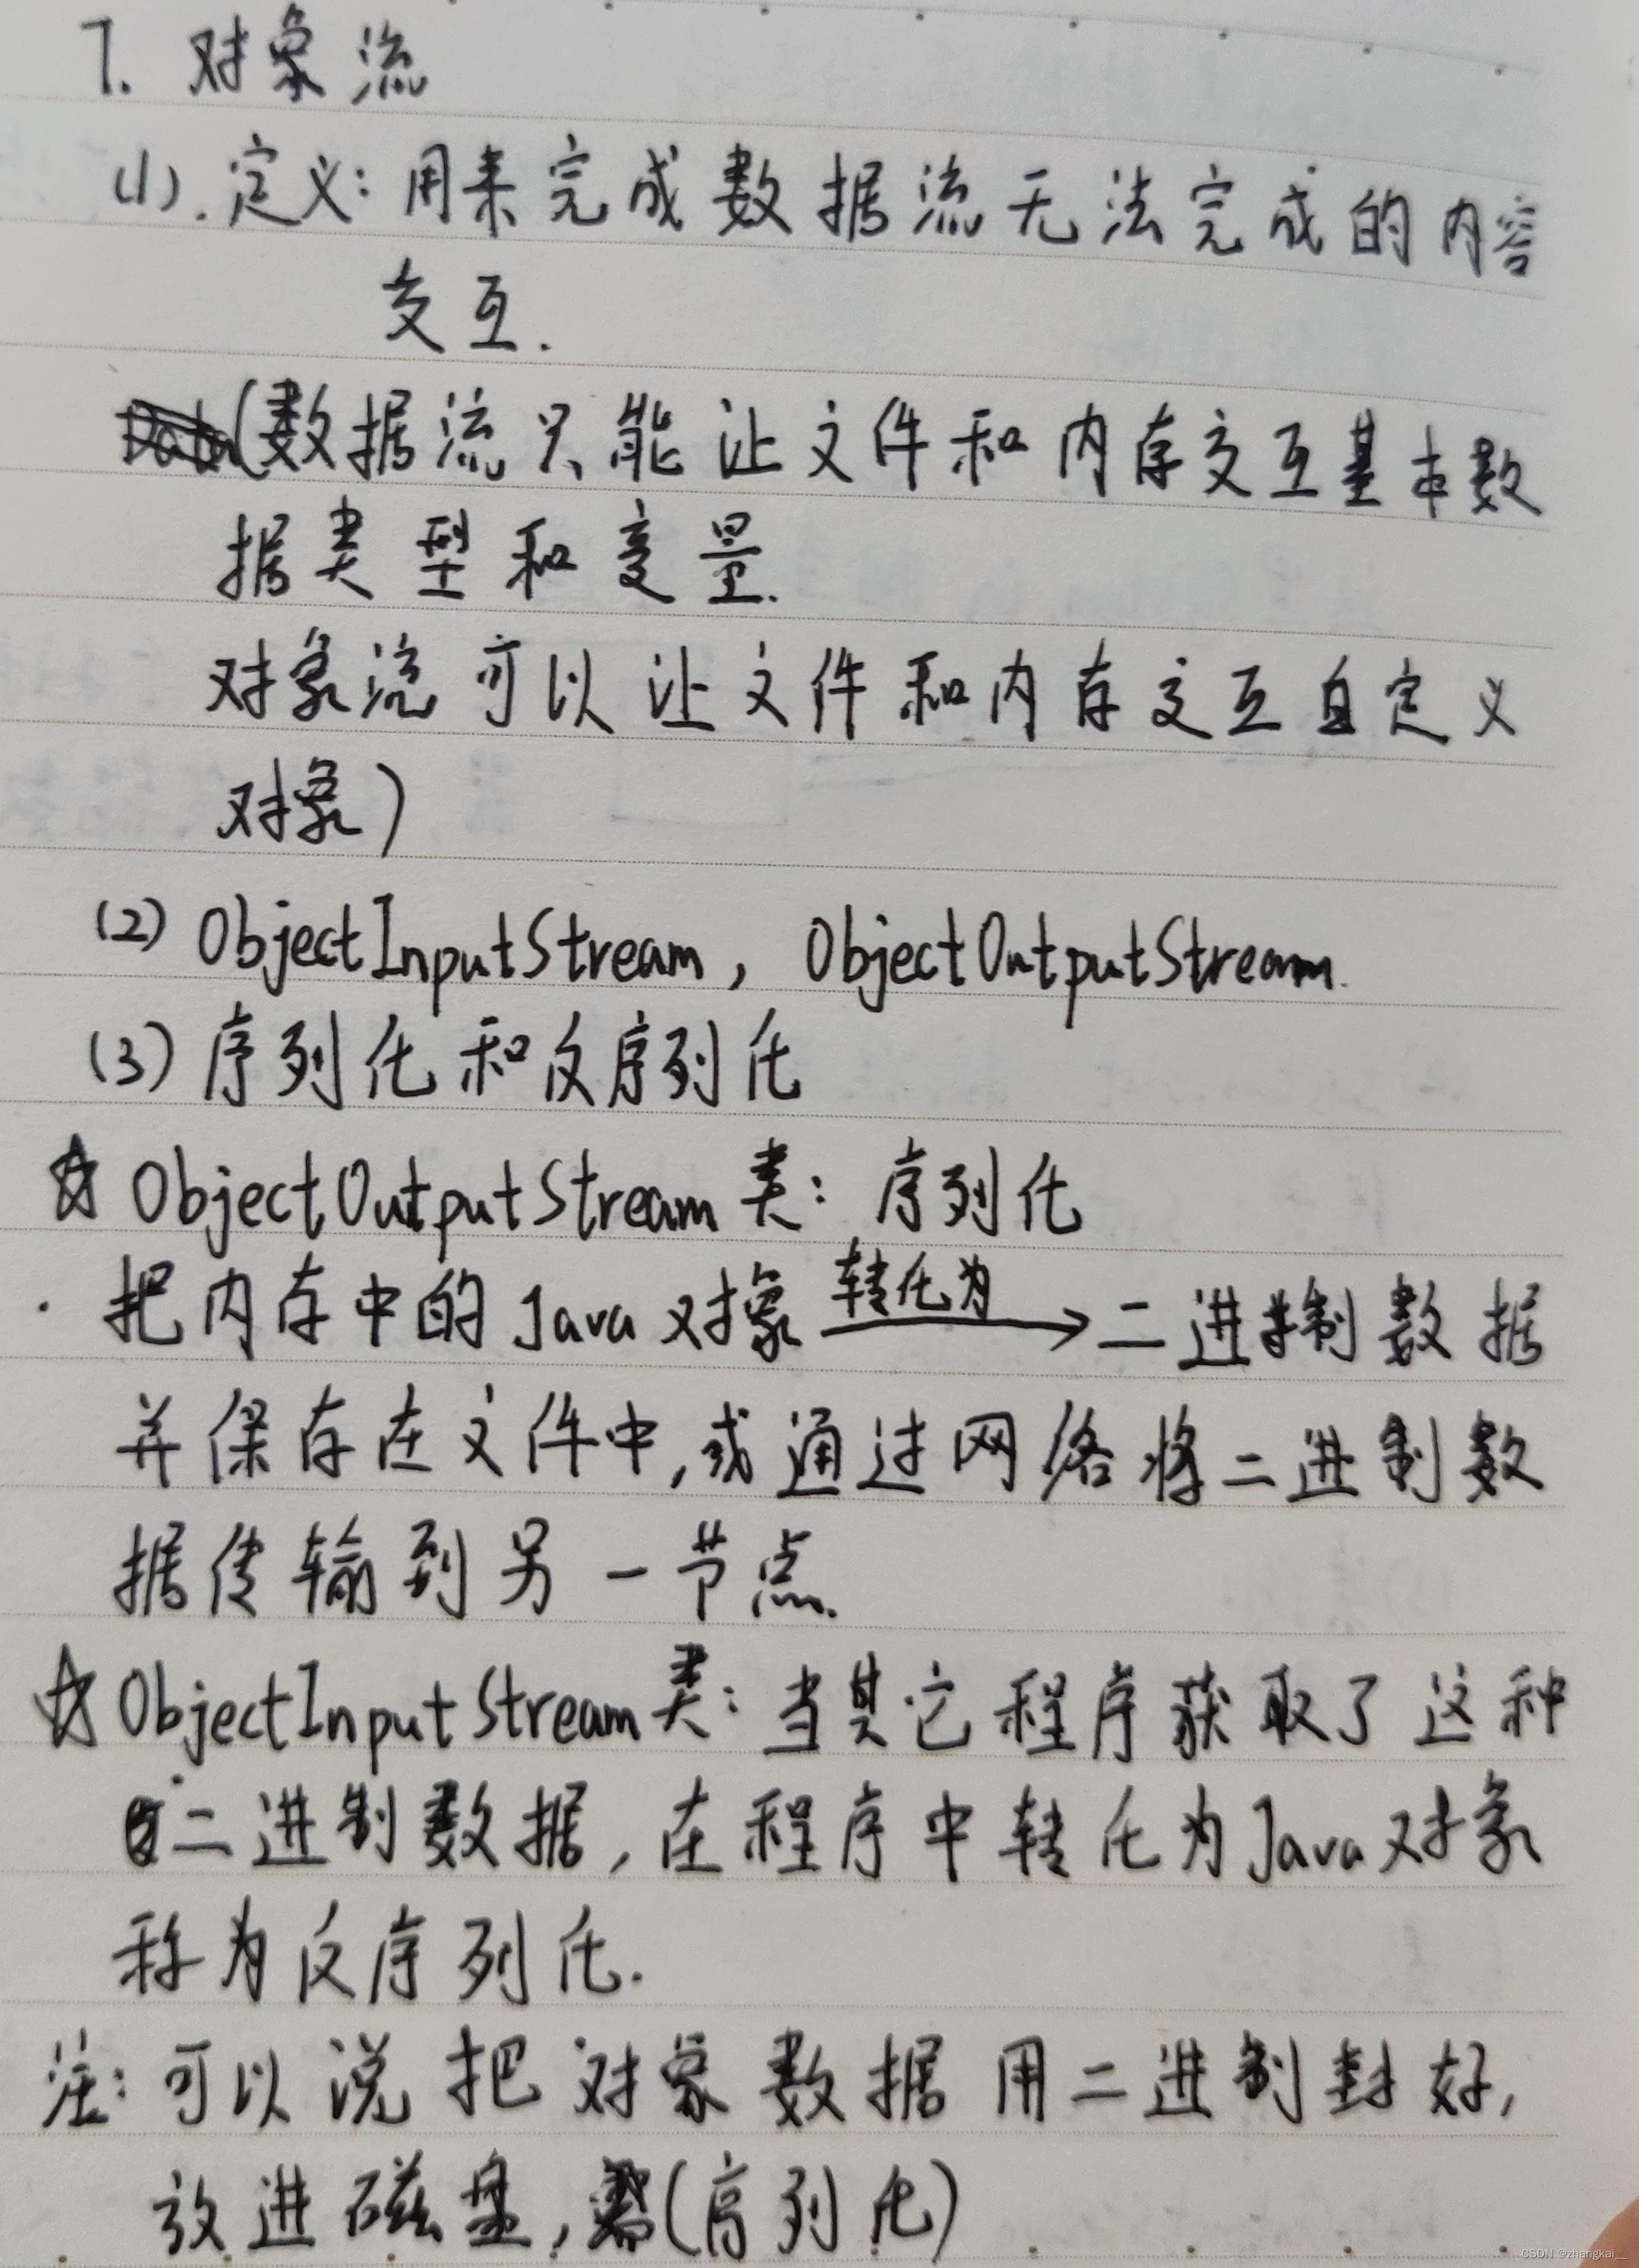 7. 对象流
(1). 定义: 用来完成数据流无法完成的内容
交互.
(数据流只能让文件和内存交互基本数
据类型和变量.
对象流可以让文件和内存交互自定义
对象)
(2) ObjectInputStream, ObjectOutputStream.
(3) 序列化和反序列化
☆ ObjectOutputStream类: 序列化
· 把内存中的Java对象 转化为→ 二进制数据
并保存在文件中,或通过网络将二进制数
据传输到另一节点.
☆ ObjectInputStream类: 当其它程序获取了这种
二进制数据,在程序中转化为Java对象
称为反序列化.
注: 可以说把对象数据用二进制封好,
放进磁盘,(序列化)
CSDN @zhangkai__